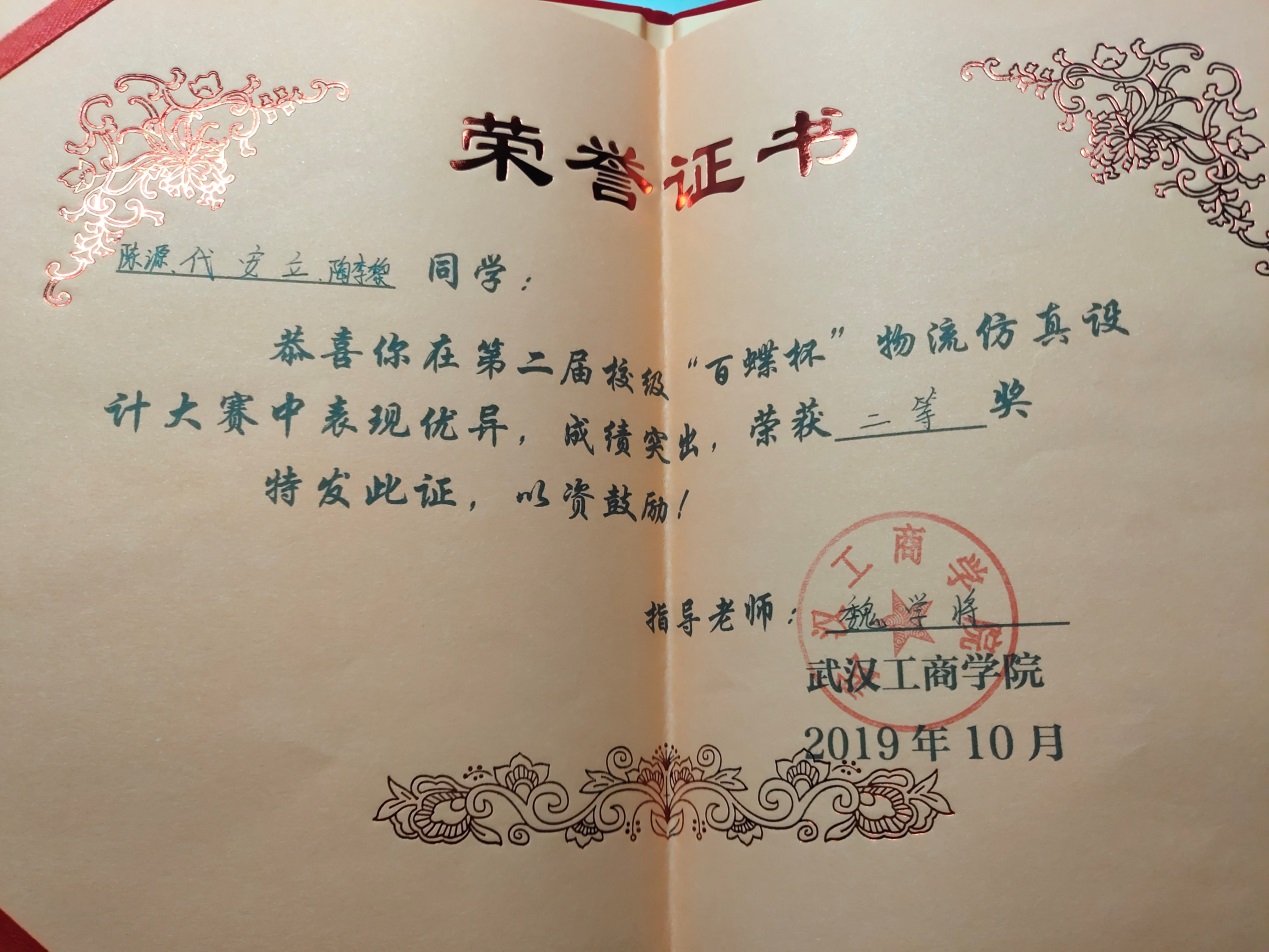 荣誉证书
陈源、代安立、陶李黎 同学：
恭喜你在第二届校级“百蝶杯”物流仿真设
计大赛中表现优异，成绩突出，荣获二等奖
特发此证，以资鼓励！
指导老师：魏学将
武汉工商学院
武汉工商学院
2019年10月